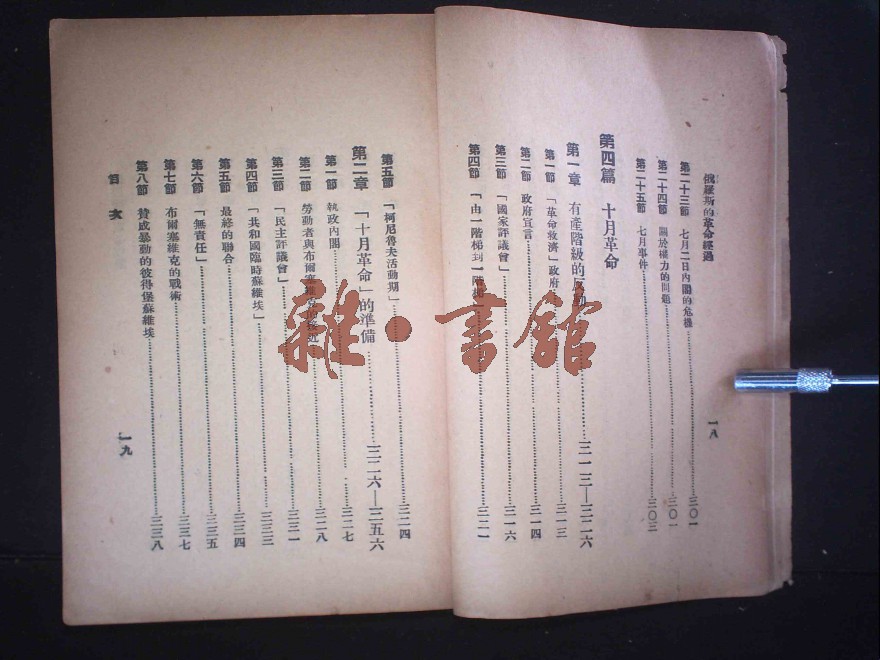 俄羅斯的革命經過
一八
第二十三節 七月二日內閣的危機 三〇一
第二十四節 關於權力的問題 三〇一
第二十五節 七月事件 三〇三
第四篇 十月革命
第一章 有產階級的反動 三一三—三二六
第一節 「革命救濟」政府 三一三
第二節 政府宣言 三一四
第三節 「國家評議會」 三一六
第四節 「由一階梯到一階梯」 三二一
第五節 「柯尼魯夫活動期」 三二四
第二章 「十月革命」的準備 三二六—三五六
第一節 執政內閣 三二七
第二節 勞動者與布爾塞維克的接近 三二八
第三節 「民主評議會」 三三一
第四節 「共和國臨時蘇維埃」 三三三
第五節 最終的聯合 三三四
第六節 「無責任」 三三五
第七節 布爾塞維克的戰術 三三七
第八節 贊成暴動的彼得堡蘇維埃 三三八
目次
一九
雜·書館